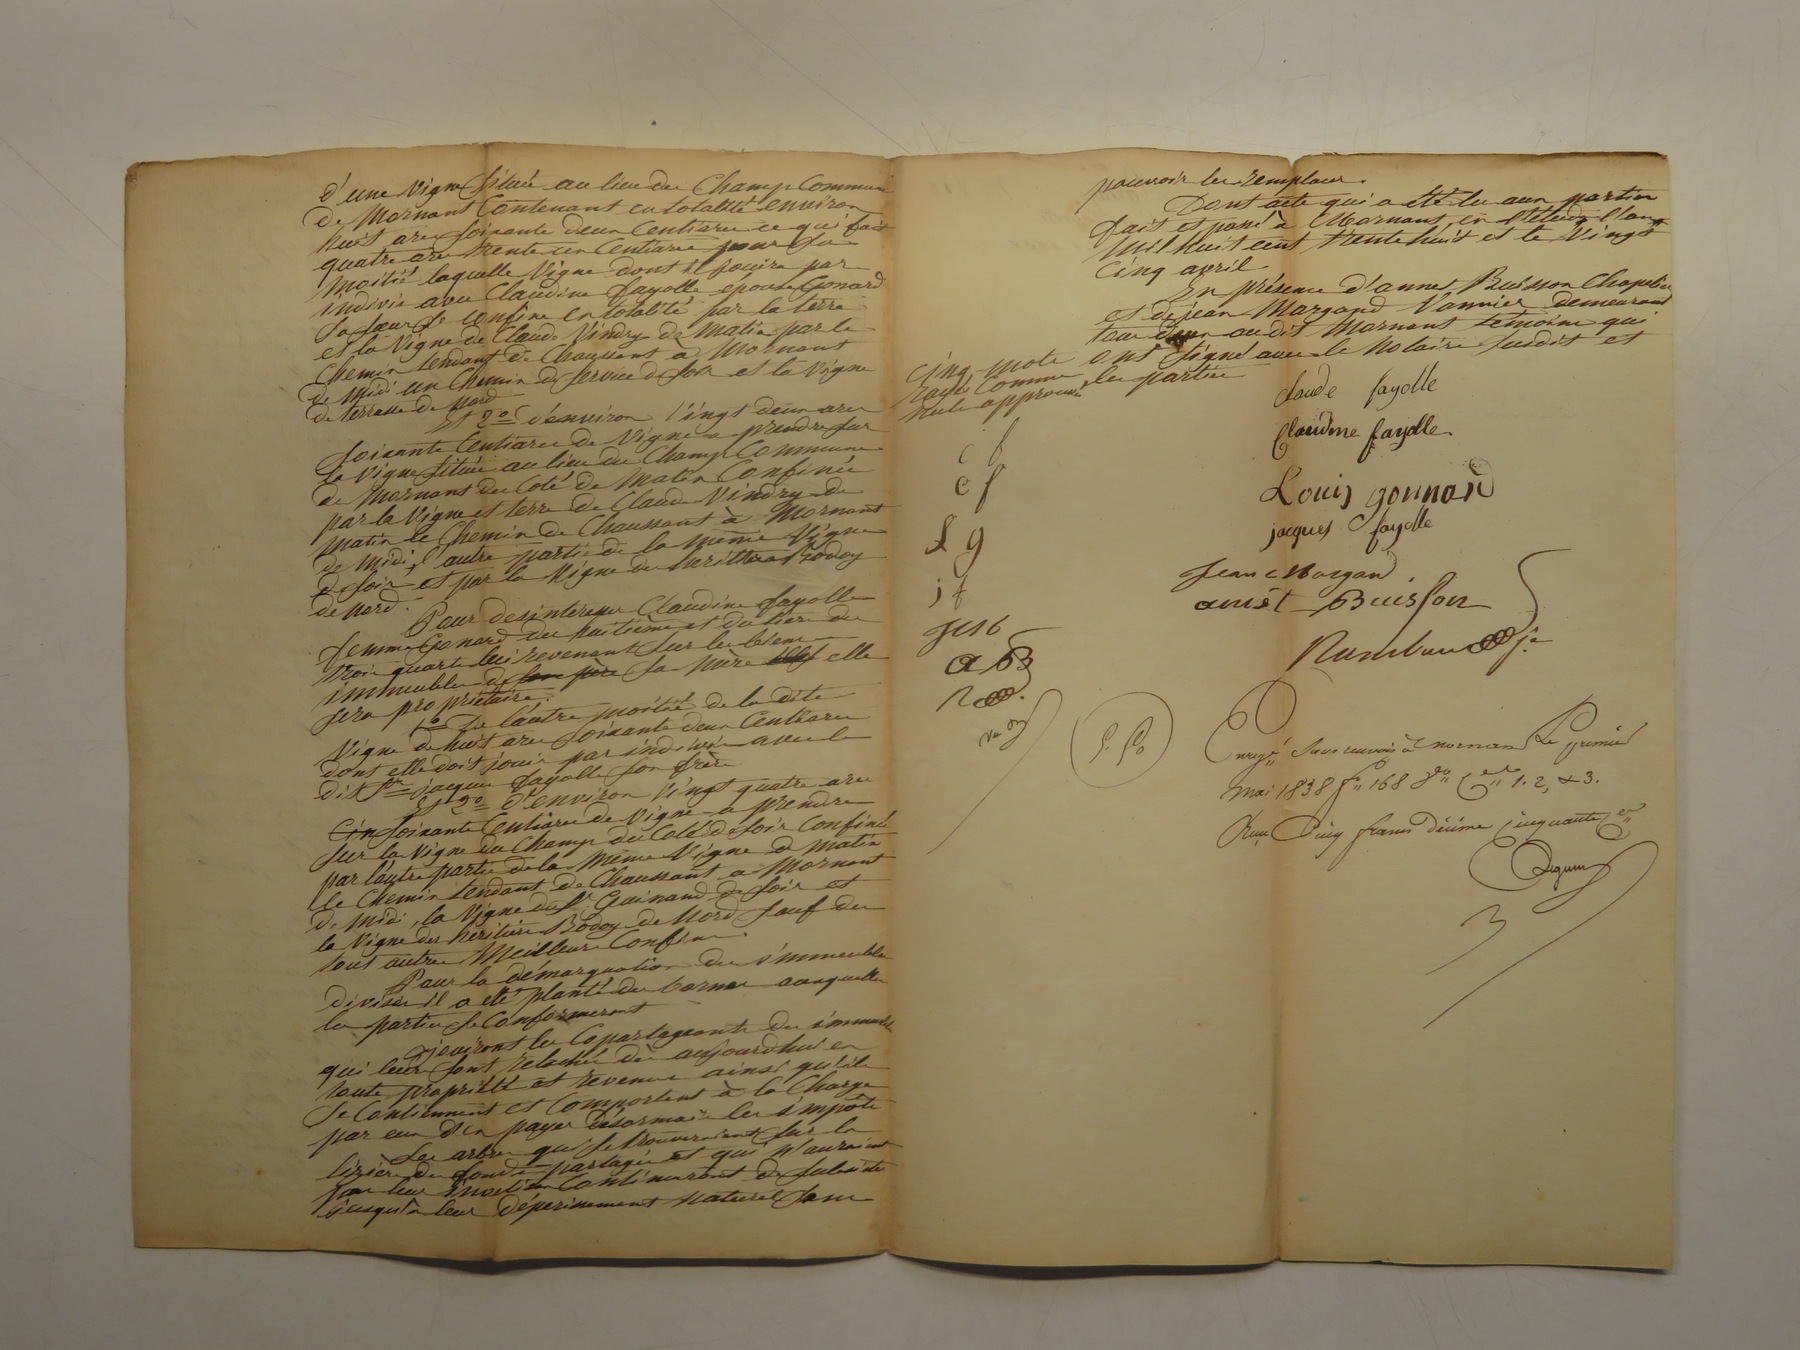 d'une Vigne Située au lieu du Champ Commune
de Mornant Contenant en totalité environ
huit are Soixante deux Centiares ce qui fait
quatre are trente un Centiares pour Sa
Moitié laquelle Vigne dont il jouira par
indivis avec Claudine fayolle epouse Gonard
Sa Sœur Se confine en totalité par la terre
et la Vigne de Claude Vindry de Matin par le
Chemin tendant de Chaussant a Mornant
de Midi un Chemin de Service de Soir et la Vigne
de terrasse de Nord
Et 2º d'environ Vingt deux ares
Soixante Centiares de Vigne a prendre Sur
la Vigne Située au lieu du Champ Commune
de Mornant du Coté de Matin Confinée
par la Vigne et terre de Claude Vindry de
Matin le Chemin de Chaussant à Mornant
de Midi, l'autre partie de la même Vigne
de Soir et par la Vigne des heritiers Bodoy
de Nord.
Pour desinteresser Claudine fayolle
femme Gonard du huitieme et du tiers des
trois quarts lui revenant Sur les biens
immeubles de son père Sa Mère elle
Sera propriétaire:
1º De l'autre moitié de la dite
Vigne de huit are Soixante deux Centiares
dont elle doit jouir par indivis avec le
dit Sr Jacques fayolle Son frère
Et 2º d'environ Vingt quatre ares
Cin Soixante Centiares de Vigne a prendre
Sur la Vigne du Champ du Coté de Soir Confinée
par l'autre partie de la Meme Vigne de Matin
le Chemin tendant de Chaussant a Mornant
de Midi, la Vigne du Sr Guinand de Soir et
la Vigne des heritiers Bodoy de Nord Sauf de
tous autres Meilleurs Confins.
Pour la démarquation des immeubles
divisés il a été planté des bornes auxquelles
les parties Se Conformeront
Jouiront les Copartageants des immeubles
qui leur Sont relachés dès aujourdhui en
toute propriété et revenus ainsi qu'ils
Se Contiennent et Comportent à la Charge
par eux d'en payer désormais les impôts
Les arbres qui Se trouveraient Sur la
lizière des fonds partagés et qui n'auraient
pas leur Continueront de Subsister
jusqu'a leur dépérissement naturel Sans
pouvoir les remplacer.
Dont acte qui a été lu aux parties
fait et passé à Mornant en l'étude l'an
Mil huit cent trente huit et le Vingt
Cinq avril
En présence d'annet Buisson Chapelier
et de jean Margand Vannier demeurant
tous deux au dit Mornant témoins qui
ont Signé avec le Notaire Susdit et
les parties
Cinq mots
rayés Comme
nuls approuvés
c f
c f
L g
j f
a B
Claude fayolle
Claudine fayolle
Louis gonnard
jacques fayolle
Jean Margand
annet Buisson
Enregé Sans renvois à mornant Le premier
mai 1838 fº 168 Vº Ces 1. 2, & 3.
Reçu Cinq francs décime cinquante Ces